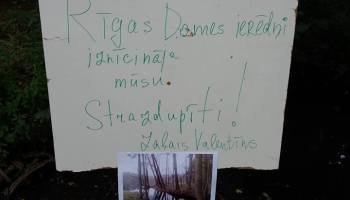 Rīgas Domes ierēdņi
iznīcināja
mūsu.
Strazdupīti!
Labais Valentīns